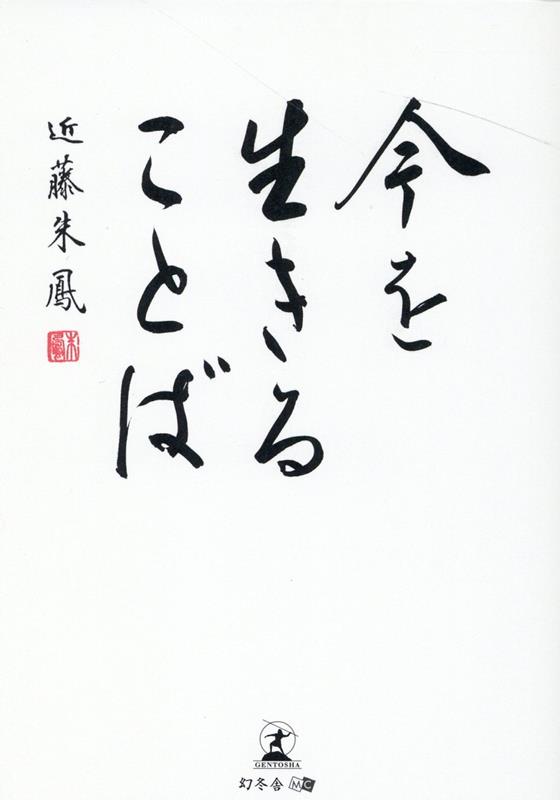 今を
生きる
ことば
近藤朱鳳
朱鳳
GENTOSHA
幻冬舎 MC